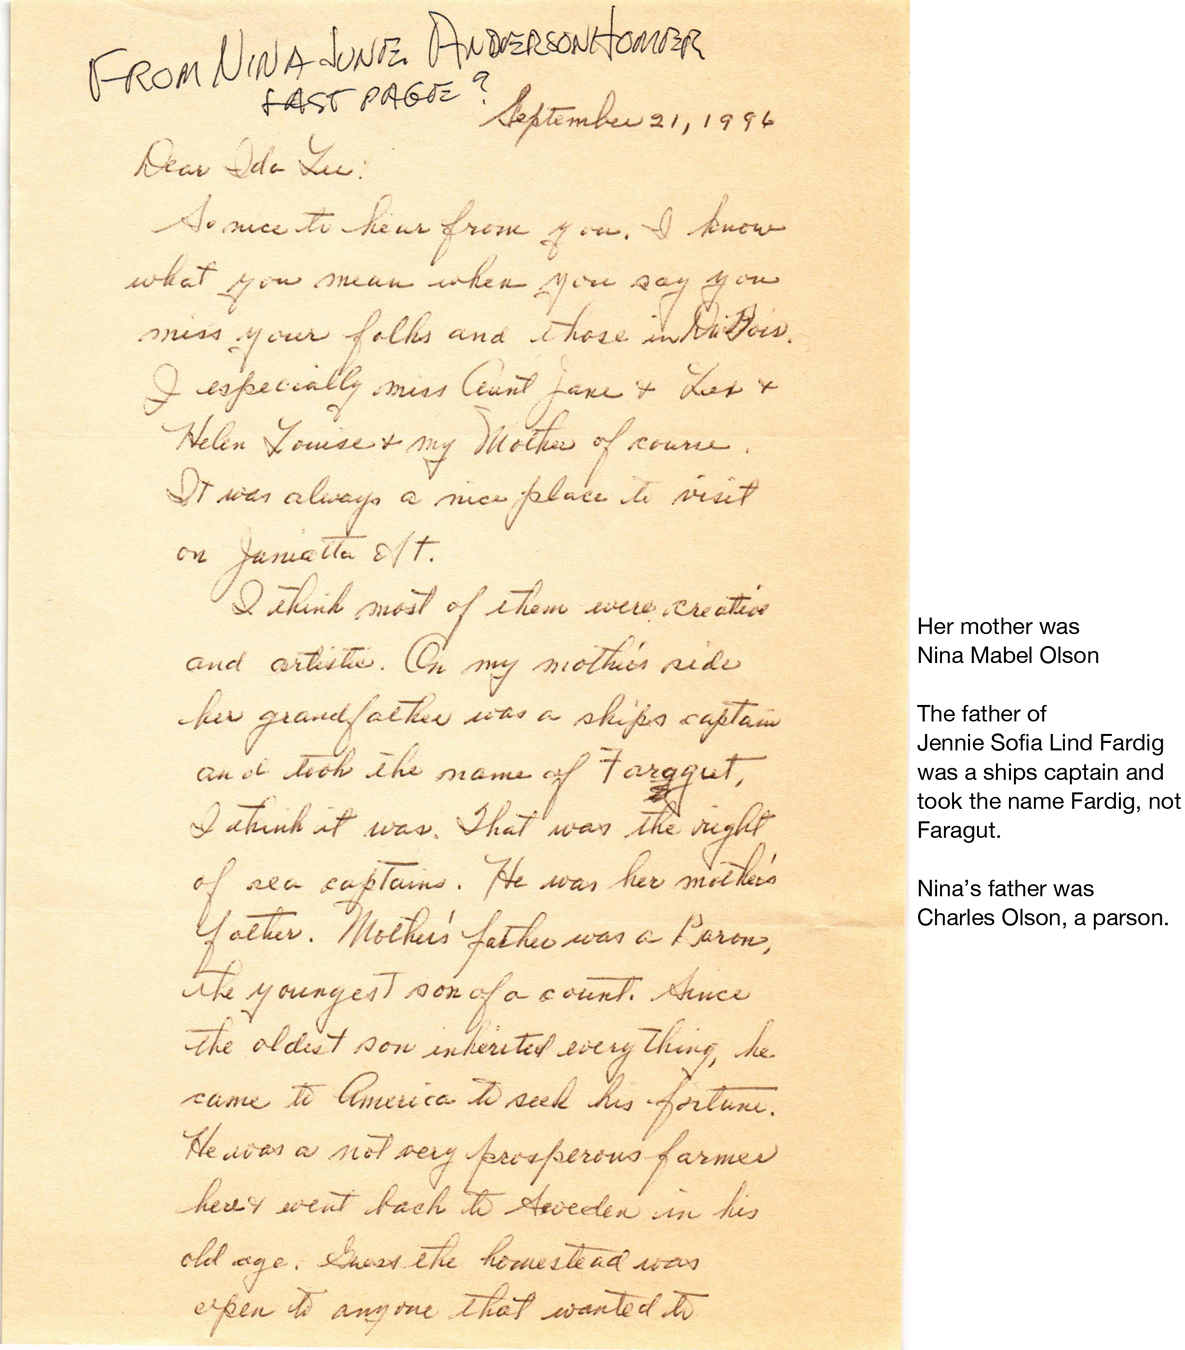 FROM NINA JUNE ANDERSON HOMER
LAST PAGE?
September 21, 1996
Dear Ida Lee:
So nice to hear from you. I know
what you mean when you say you
miss your folks and those in DuBois.
I especially miss Aunt Jane & Lex &
Helen Louise & my Mother of course.
It was always a nice place to visit
on Juniatta St.
I think most of them were creative
and artistic. On my mother's side
her grandfather was a ships captain
and took the name of Faragut,
I think it was. That was the right
of sea captains. He was her mother's
father. Mother's father was a Baron,
the youngest son of a count. Since
the oldest son inherited everything, he
came to America to seek his fortune.
He was a not very prosperous farmer
here & went back to Sweden in his
old age. Guess the homestead was
open to anyone that wanted to
Her mother was
Nina Mabel Olson
The father of
Jennie Sofia Lind Fardig
was a ships captain and
took the name Fardig, not
Faragut.
Nina's father was
Charles Olson, a parson.